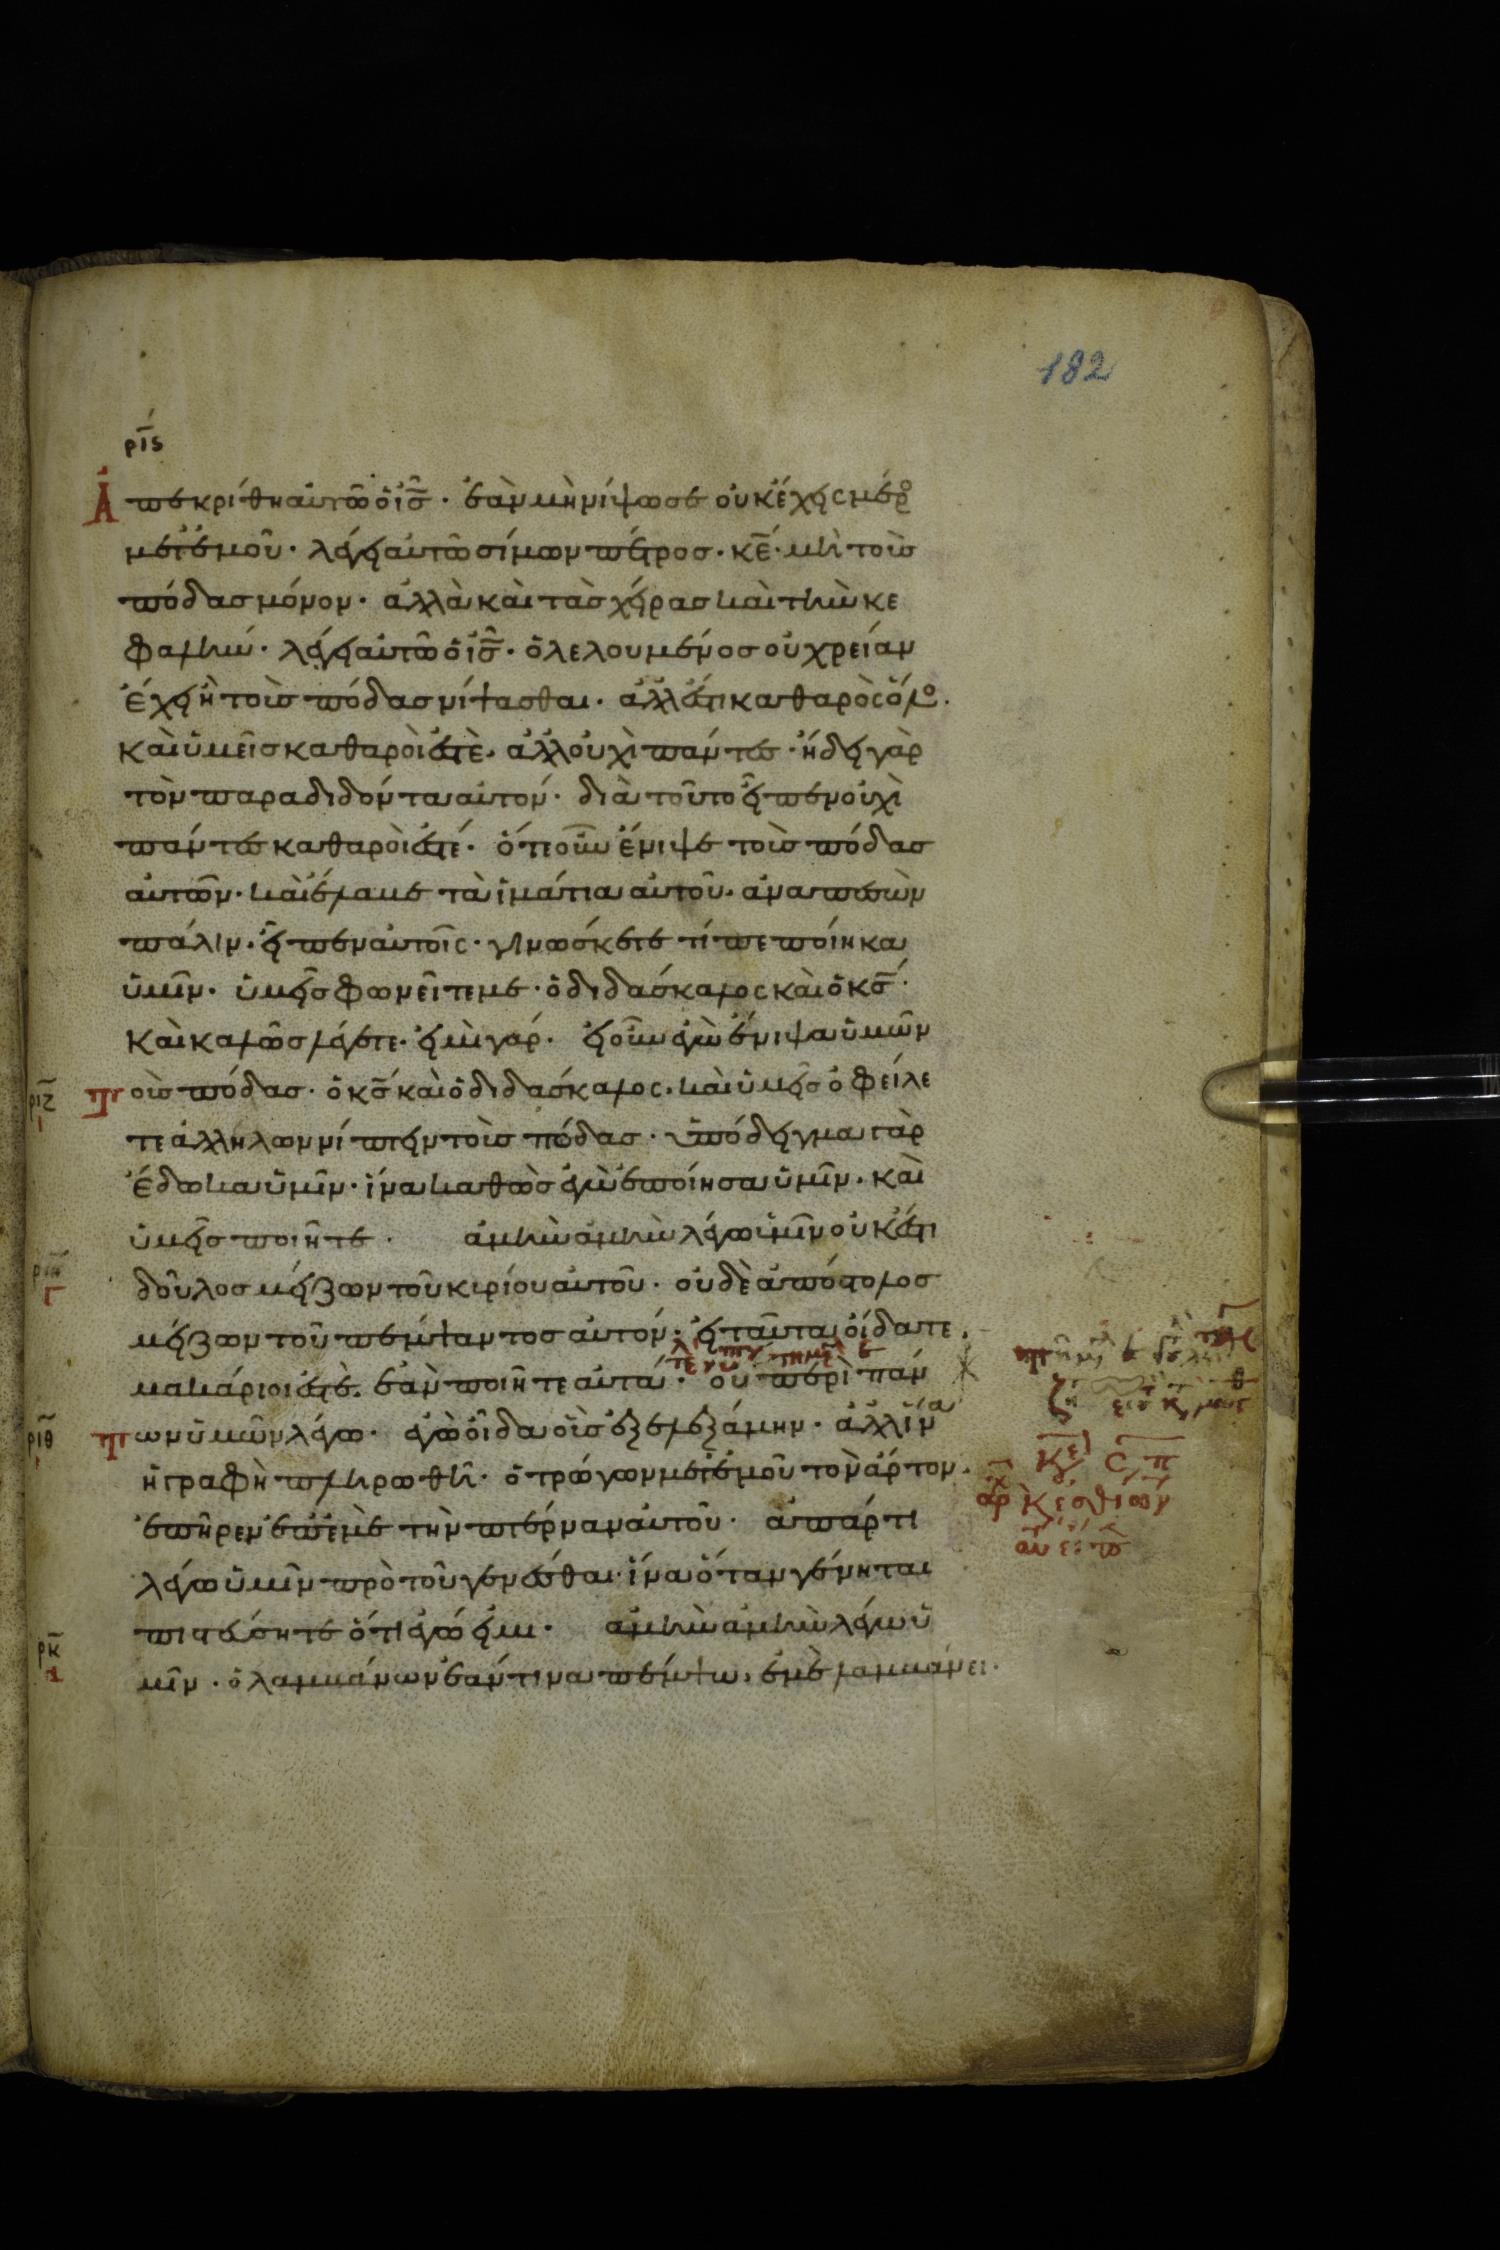 182
ρις
Ἀπεκρίθη αὐτῶ ὁ ις̅· ἐὰν μὴ νίψω σε οὐκ ἔχεις μέρο
μετ' ἐμοῦ· λέγει αὐτῶ σίμων πέτρος· κε̅· μὴ τοὺς
πόδας μόνον· ἀλλὰ καὶ τὰς χεῖρας καὶ τὴν κε
φαλήν· λέγει αὐτῶ ὁ ις̅· ὁ λελουμένος οὐ χρείαν
ἔχει ἢ τοὺς πόδας νίψασθαι· ἀλλ' ἔστι καθαρὸς ὅλο·
καὶ ὑμεῖς καθαροί ἐστὲ· ἀλλ' οὐχὶ πάντες· ἤδει γὰρ
τὸν παραδιδόντα αὐτόν· διὰ τοῦτο εἶπεν οὐχὶ
πάντες καθαροί ἐστέ· ὅτε οὖν ἔνιψε τοὺς πόδας
αὐτῶν· καὶ ἔλαβε τὰ ἱμάτια αὐτοῦ· ἀναπεσὼν
πάλιν· εἶπεν αὐτοῖς· γινώσκετε τί πεποίηκα
ὑμῖν· ὑμεῖς φωνεῖτε με· ὁ διδάσκαλος καὶ ὁ κς̅·
καὶ καλῶς λέγετε· εἰμὶ γάρ· εἰ οὖν ἐγὼ ἔνιψα ὑμῶν
ριζ τοὺς πόδας· ὁ κς̅ καὶ ὁ διδάσκαλος· καὶ ὑμεῖς ὀφείλε
τε ἀλλήλων νίπτειν τοὺς πόδας· ὑπόδειγμα γὰρ
ἔδωκα ὑμῖν· ἵνα καθὼς ἐγὼ ἐποίησα ὑμῖν· καὶ
ὑμεῖς ποιῆτε· ἀμὴν ἀμὴν λέγω ὑμῖν οὐκ ἔστι
δοῦλος μείζων τοῦ κυρίου αὐτοῦ· οὐδὲ ἀπόστολος
μείζων τοῦ πέμψαντος αὐτόν· εἰ ταῦτα οἴδατε·
μακάριοι ἐστὲ· ἐὰν ποιῆτε αὐτά· οὐ περὶ πάν
ριθ των ὑμῶν λέγω· ἐγὼ οἶδα οὓς ἐξελεξάμην· ἀλλ' ἵνα
ἡ γραφὴ πληρωθῆ· ὁ τρώγων μετ' ἐμοῦ τὸν ἄρτον·
ἐπῆρεν ἐπ' ἐμὲ τὴν πτέρναν αὐτοῦ· ἀπάρτι
λέγω ὑμῖν πρὸ τοῦ γενέσθαι· ἵνα ὅταν γένηται
πιστεύσητε ὅτι ἐγώ εἰμι· ἀμὴν ἀμὴν λέγω ὑ
ρκ μῖν· ὁ λαμβάνων ἐάν τινα πέμψω· ἐμὲ λαμβάνει·